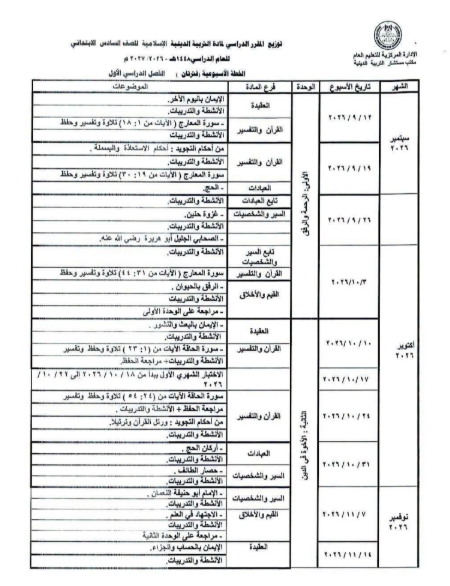 الإدارة المركزية للتعليم العام
مكتب مستشار التربية الدينية
توزيع المقرر الدراسي لمادة التربية الدينية الإسلامية للصف السادس الابتدائي
للعام الدراسي ١٤٤٨هـ - ٢٠٢٦/ ٢٠٢٧ م
الخطة الأسبوعية: فترتان / الفصل الدراسي الأول
الشهر
تاريخ الأسبوع
الوحدة
فرع المادة
الموضوعات
سبتمبر
٢٠٢٦
الأولى: الرحمة والرفق
٢٠٢٦ / ٩ / ١٢
العقيدة
الإيمان باليوم الآخر.
الأنشطة والتدريبات.
القرآن والتفسير
- سورة المعارج ( الآيات من ١: ١٨) تلاوة وتفسير وحفظ
الأنشطة والتدريبات
٢٠٢٦ / ٩ / ١٩
القرآن والتفسير
من أحكام التجويد : أحكام الاستعاذة والبسملة .
الأنشطة والتدريبات
سورة المعارج (الآيات من ١٩: ٣٠) تلاوة وتفسير وحفظ
العبادات
- الحج.
٢٠٢٦ / ٩ / ٢٦
تابع العبادات
الأنشطة والتدريبات.
السير والشخصيات
- غزوة حنين.
الأنشطة والتدريبات.
- الصحابي الجليل أبو هريرة رضي الله عنه.
أكتوبر
٢٠٢٦
٢٠٢٦/١٠/٣
تابع السير
والشخصيات
الأنشطة والتدريبات.
القرآن والتفسير
سورة المعارج (الآيات من ٣١: ٤٤) تلاوة وتفسير وحفظ
الأنشطة والتدريبات
القيم والأخلاق
- الرفق بالحيوان .
الأنشطة والتدريبات.
- مراجعة على الوحدة الأولى
الثانية : الأخوة في الدين
٢٠٢٦/١٠/١٠
العقيدة
- الإيمان بالبعث والنشور .
الأنشطة والتدريبات.
القرآن والتفسير
- سورة الحاقة الآيات من (١: ٢٣ ) تلاوة وحفظ وتفسير
الأنشطة والتدريبات+ مراجعة الحفظ.
٢٠٢٦/١٠/١٧
الاختبار الشهري الأول يبدأ من ١٨ / ١٠ / ٢٠٢٦ إلى ٢٢ / ١٠ /
٢٠٢٦
٢٠٢٦ / ١٠ / ٢٤
القرآن والتفسير
سورة الحاقة الآيات من (٢٤: ٥٤ ) تلاوة وحفظ وتفسير
مراجعة الحفظ + الأنشطة والتدريبات .
من أحكام التجويد : ورتل القرآن ترتيلا.
الأنشطة والتدريبات.
٢٠٢٦ / ١٠ / ٣١
العبادات
- أركان الحج .
الأنشطة والتدريبات.
السير والشخصيات
- حصار الطائف .
الأنشطة والتدريبات.
نوفمبر
٢٠٢٦
٢٠٢٦ / ١١ / ٧
السير والشخصيات
- الإمام أبو حنيفة النعمان .
الأنشطة والتدريبات.
القيم والأخلاق
- الاجتهاد في العلم .
الأنشطة والتدريبات
- مراجعة على الوحدة الثانية
٢٠٢٦ / ١١ / ١٤
العقيدة
الإيمان بالحساب والجزاء.
الأنشطة والتدريبات.